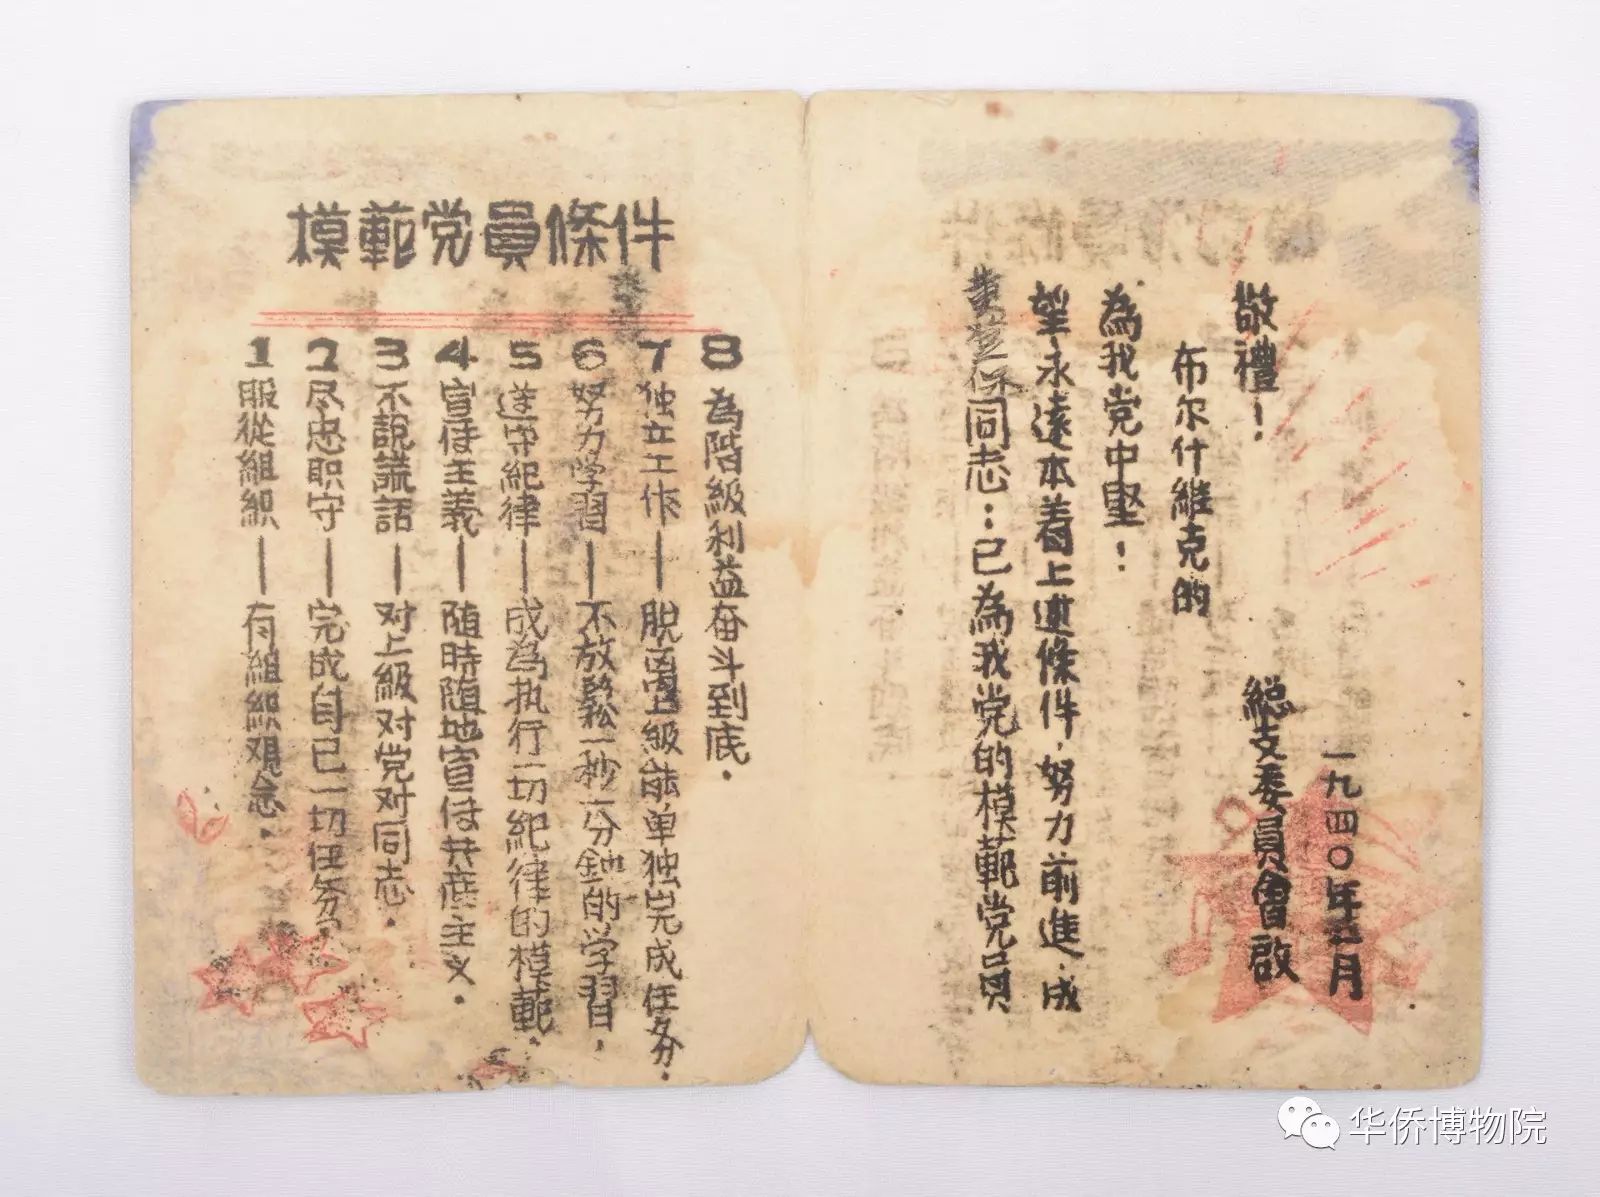 模範党員條件
1 服從組織——有組織观念．
2 尽忠职守——完成自己一切任务．
3 不說謊話——对上級对党对同志．
4 宣传主義——随時随地宣传共产主义．
5 遵守紀律——成為执行一切紀律的模範．
6 努力学習——不放鬆一秒一分鈡的学習．
7 独立工作——脱离上級能单独完成任务．
8 為階級利益奋斗到底．
黄登保同志：已為我党的模範党員
望永遠本着上述條件，努力前進，成
為我党中堅！
布尔什維克的
敬禮！
総支委員會啟
一九四〇年五月
华侨博物院